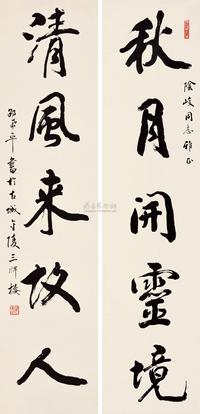 秋月開靈境
陰岐同志雅正
清風来故人
書於古城金陵三牌樓